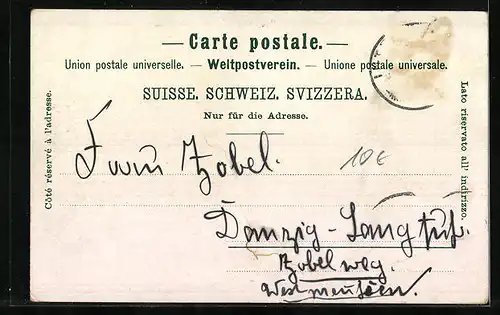 — Carte postale. —
Union postale universelle. — Weltpostverein. — Unione postale universale.
SUISSE. SCHWEIZ. SVIZZERA.
Nur für die Adresse.
Côté réservé à l'adresse.
Lato riservato all' indirizzo.
Zobel.
10€
Danzig - Langfuhr.
Zobelweg.
Westpreußen.